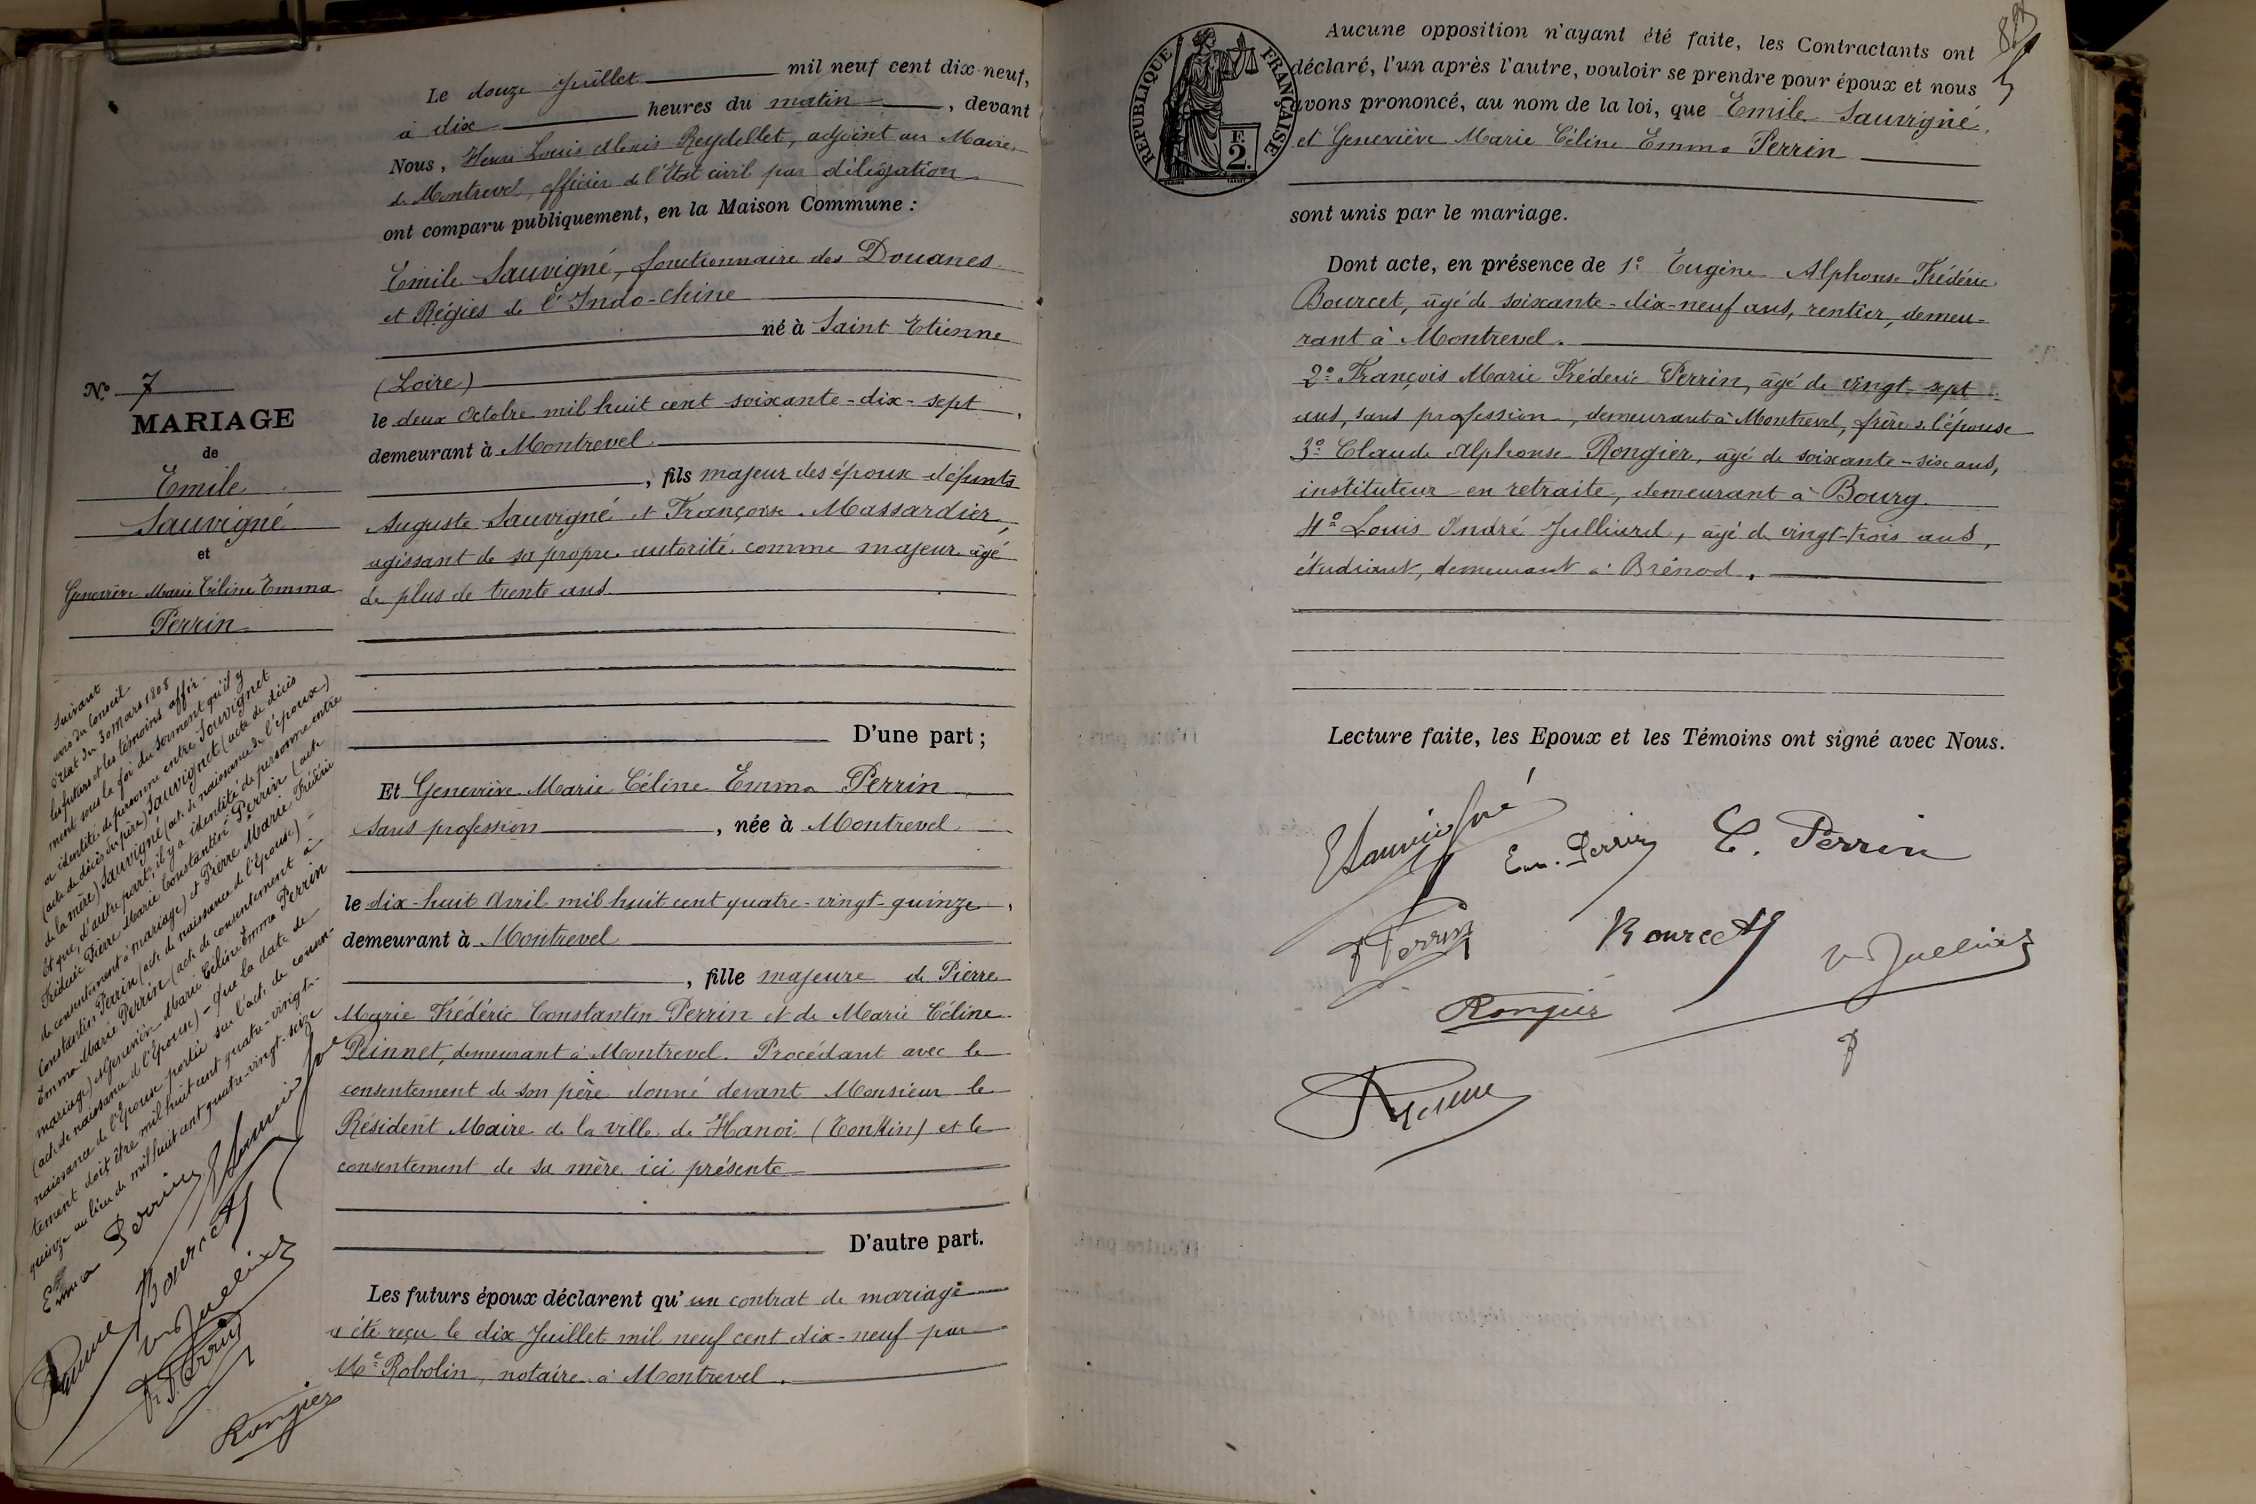 Le douze Juillet mil neuf cent dix-neuf,
à dix heures du matin, devant
Nous, Henri Louis Alexis Reydellet, adjoint au Maire
de Montrevel, officier de l'Etat civil par délégation
ont comparu publiquement, en la Maison Commune :
Emile Sauvigné, fonctionnaire des Douanes
et Régies de l'Indo-Chine
né à Saint Etienne
(Loire)
le deux Octobre mil huit cent soixante-dix-sept,
demeurant à Montrevel
, fils majeur des époux défunts
Auguste Sauvigné et Françoise Massardier,
agissant de sa propre autorité comme majeur âgé
de plus de trente ans
D'une part ;
Et Geneviève Marie Céline Emma Perrin
sans profession, née à Montrevel
le dix-huit Avril mil huit cent quatre-vingt-quinze,
demeurant à Montrevel
, fille majeure de Pierre
Marie Frédéric Constantin Perrin et de Marie Céline
Peinnet, demeurant à Montrevel. Procédant avec le
consentement de son père donné devant Monsieur le
Résident Maire de la ville de Hanoï (Tonkin) et le
consentement de sa mère ici présente
D'autre part.
Les futurs époux déclarent qu'un contrat de mariage
a été reçu le dix Juillet mil neuf cent dix-neuf par
Me Robolin, notaire à Montrevel.
No 7
MARIAGE
de
Emile
Sauvigné
et
Geneviève Marie Céline Emma
Perrin
Suivant
avis du Conseil
d'Etat du 30 Mars 1808
les futurs et les témoins affir-
ment sous la foi du serment qu'il y
a identité de personne entre Sauvignet
(acte de décès du père) Sauvignet (acte de décès
de la mère) Sauvigné (acte de naissance de l'époux)
Et que, d'autre part, il y a identité de personne entre
Frédéric Pierre Marie Constantin Perrin (acte
de consentement à mariage) et Pierre Marie Frédéric
Constantin Perrin (acte de naissance de l'épouse) -
Emma Marie Perrin (acte de consentement à
mariage) et Geneviève Marie Céline Emma Perrin
(acte de naissance de l'épouse) - que la date de
naissance de l'épouse portée sur l'acte de consen-
tement doit être mil huit cent quatre-vingt-
quinze au lieu de mil huit cent quatre-vingt-seize
Emma Perrin
ESauvigné
Bourcet
Julliard
F. Perrin
Rongier
82
Aucune opposition n'ayant été faite, les Contractants ont
déclaré, l'un après l'autre, vouloir se prendre pour époux et nous
avons prononcé, au nom de la loi, que Emile Sauvigné
et Geneviève Marie Céline Emma Perrin
RÉPUBLIQUE FRANÇAISE
F.
2.
sont unis par le mariage.
Dont acte, en présence de 1° Eugène Alphonse Frédéric
Bourcet, âgé de soixante-dix-neuf ans, rentier, demeu-
rant à Montrevel.
2° François Marie Fréderic Perrin, âgé de vingt-sept
ans, sans profession, demeurant à Montrevel, frère de l'épouse
3° Claude Alphonse Rongier, âgé de soixante-six ans,
instituteur en retraite, demeurant à Bourg.
4° Louis André Julliard, âgé de vingt-trois ans,
étudiant, demeurant à Brénod.
Lecture faite, les Epoux et les Témoins ont signé avec Nous.
ESauvigné
Em. Perrin
C. Perrin
F Perrin
Bourcet
Julliard
Rongier